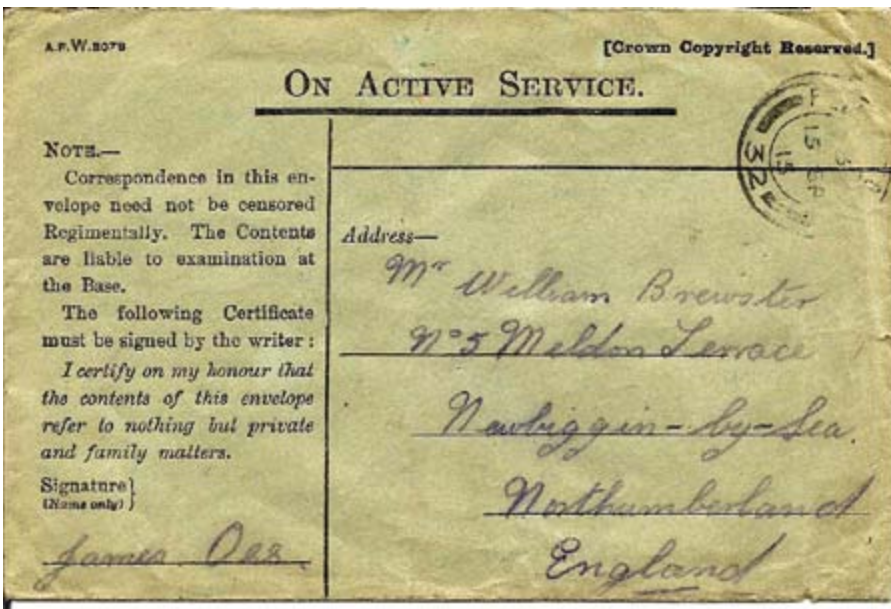 A.F.W.3078
[Crown Copyright Reserved.]
ON ACTIVE SERVICE.
NOTE.—
Correspondence in this en-
velope need not be censored
Regimentally. The Contents
are liable to examination at
the Base.
The following Certificate
must be signed by the writer:
I certify on my honour that
the contents of this envelope
refer to nothing but private
and family matters.
Signature}
(Name only)
James
Address—
Mr William Brewster
No 5 Meldon Terrace
Newbiggin-by-Sea.
Northumberland
England
15 SP
15
32